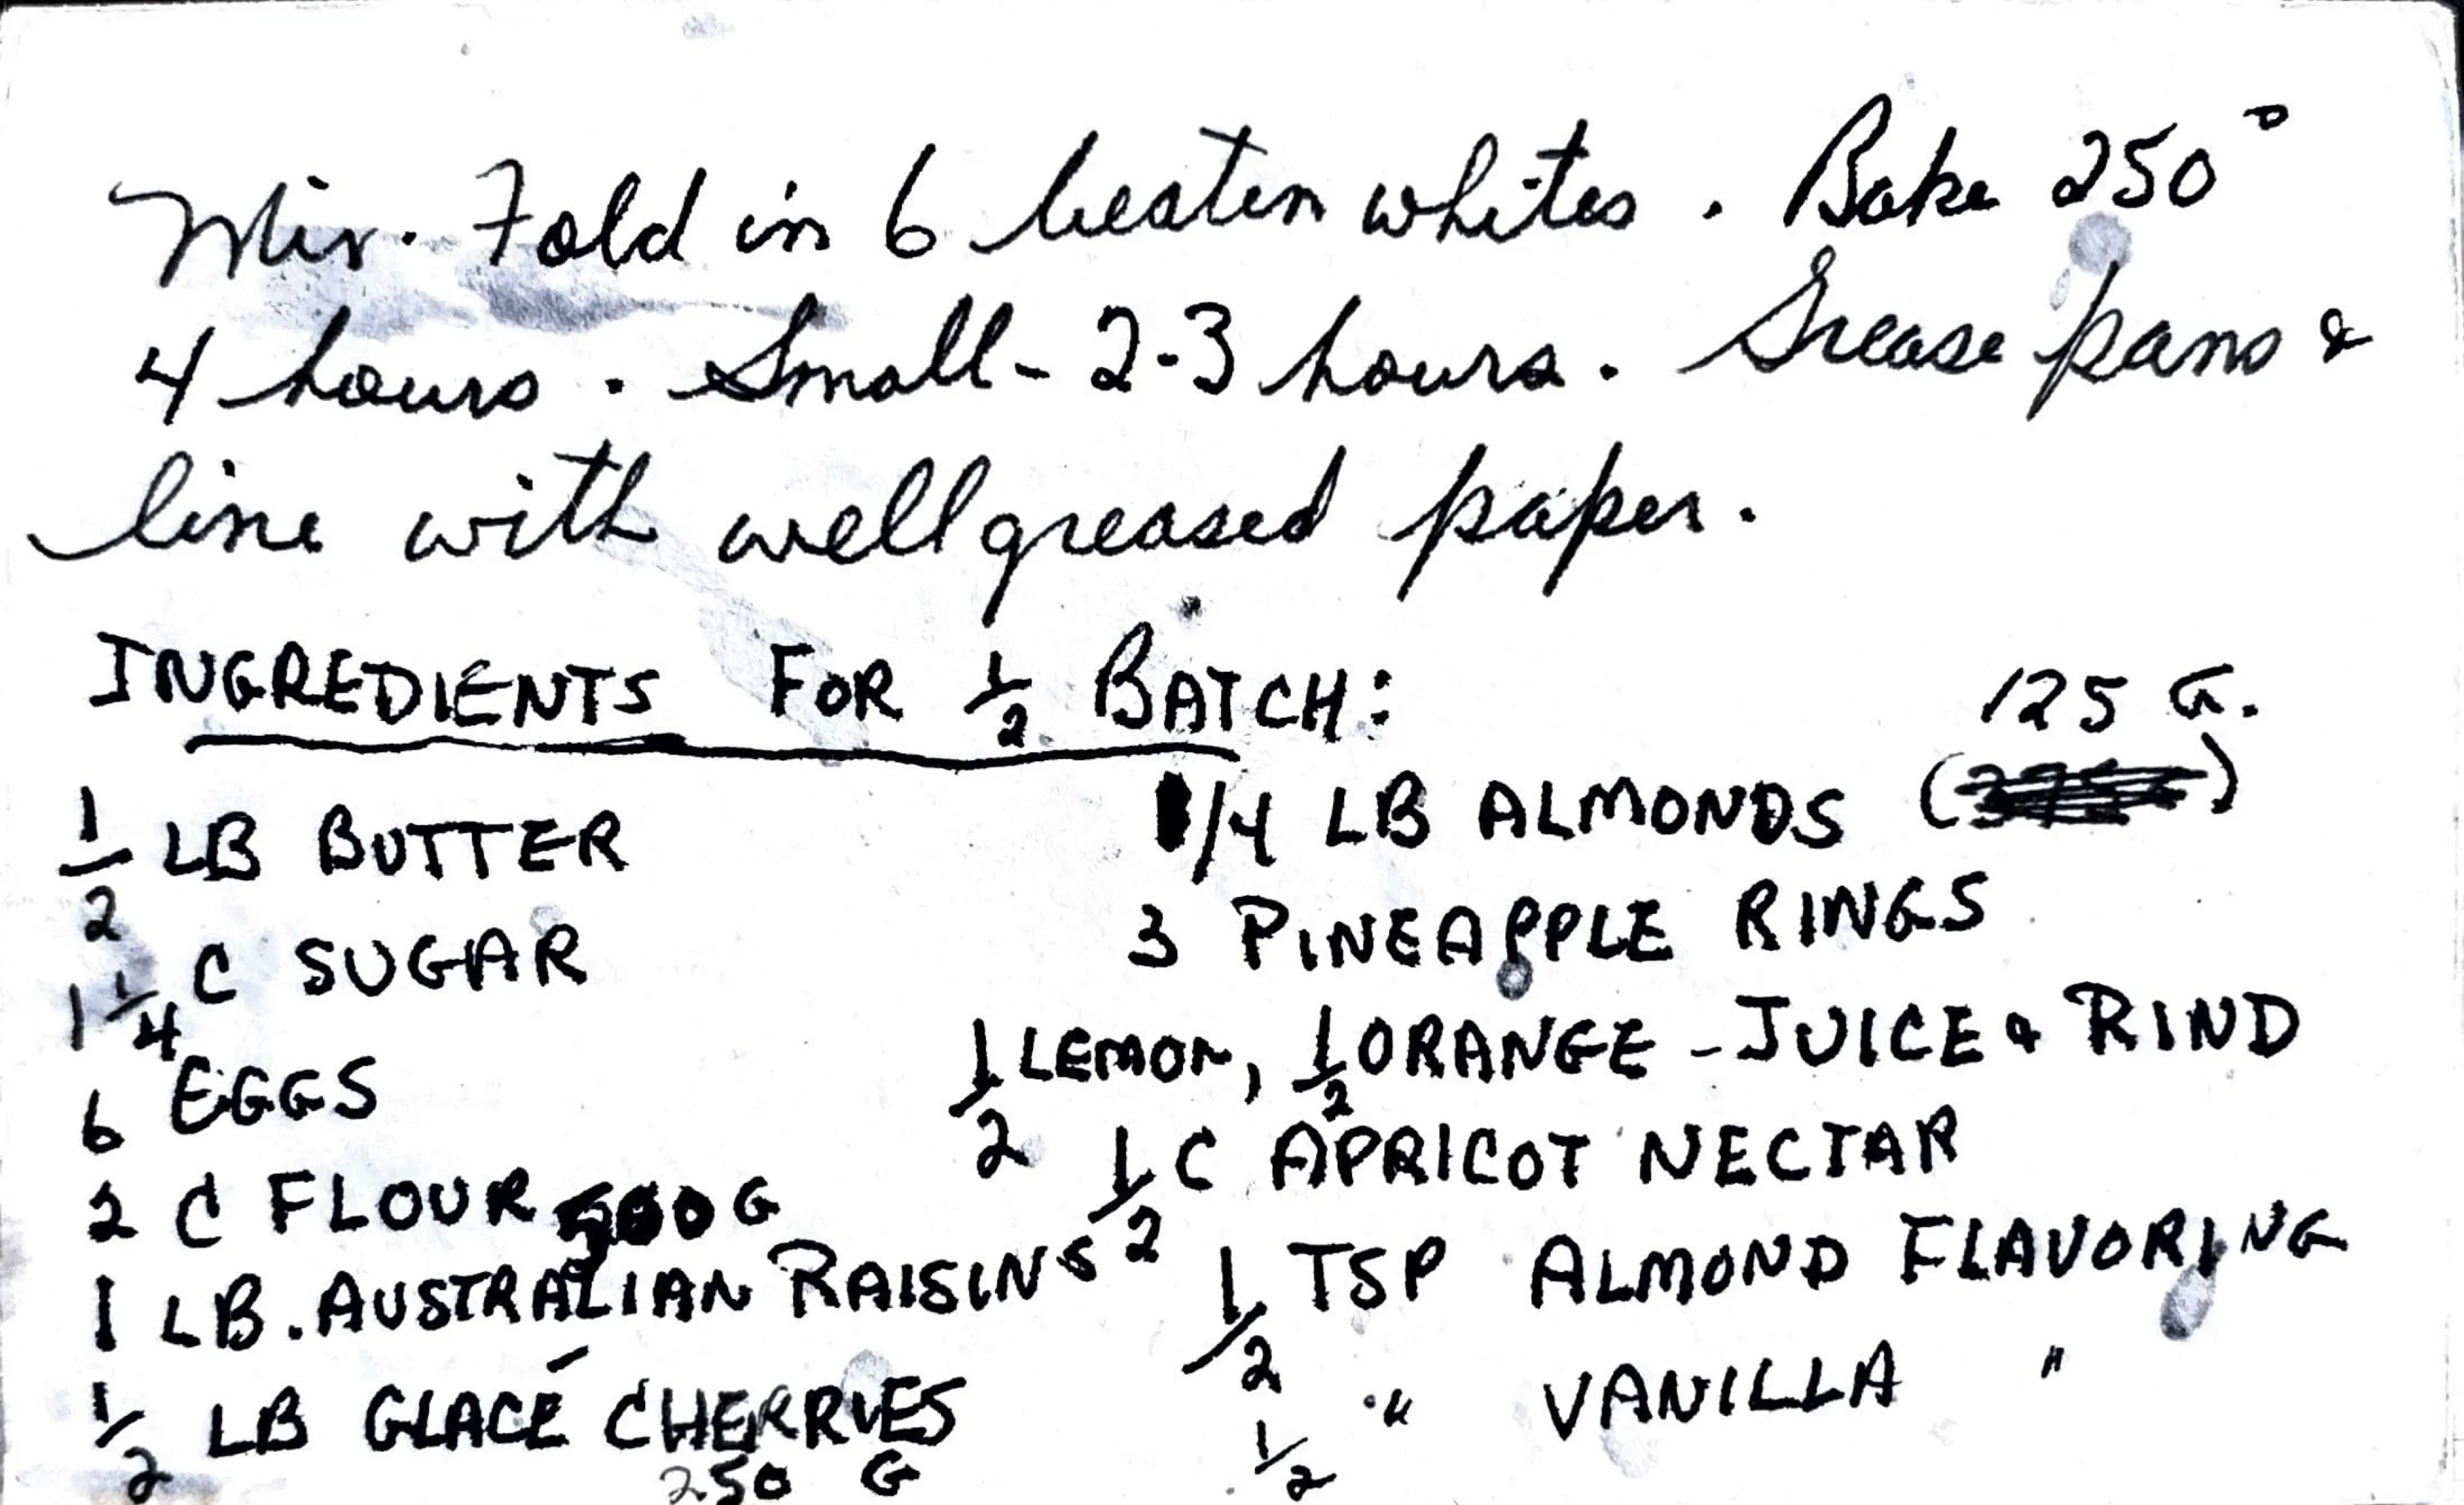 Mix. Fold in 6 beaten whites. Bake 250°
4 hours. Small - 2-3 hours. Grease pans &
line with well greased paper.
INGREDIENTS FOR 1/2 BATCH:
1/2 LB BUTTER
1 1/4 C SUGAR
6 EGGS
2 C FLOUR
500 G
1 LB. AUSTRALIAN RAISINS
1/2 LB GLACÉ CHERRIES
250 G
125 G.
1/4 LB ALMONDS ( )
3 PINEAPPLE RINGS
1/2 LEMON, 1/2 ORANGE - JUICE & RIND
1/2 C APRICOT NECTAR
1/2 TSP ALMOND FLAVORING
1/2 " VANILLA "